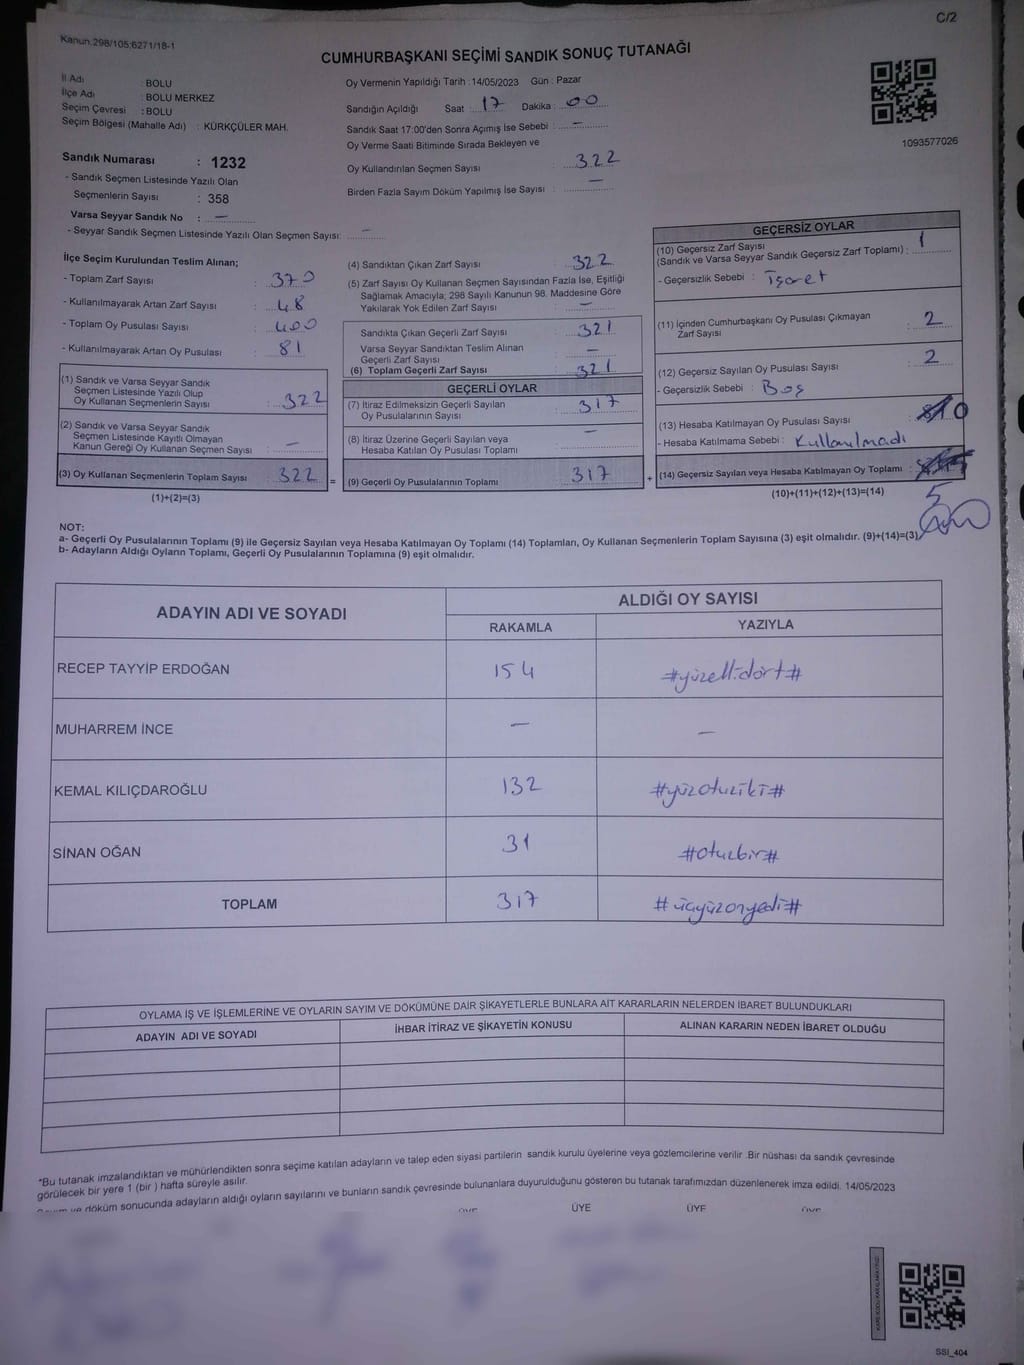 C/2
Kanun.298/105;6271/18-1
CUMHURBAŞKANI SEÇİMİ SANDIK SONUÇ TUTANAĞI
İl Adı : BOLU
İlçe Adı : BOLU MERKEZ
Seçim Çevresi : BOLU
Seçim Bölgesi (Mahalle Adı) : KÜRKÇÜLER MAH.
Sandık Numarası : 1232
- Sandık Seçmen Listesinde Yazılı Olan
Seçmenlerin Sayısı : 358
Varsa Seyyar Sandık No : —
- Seyyar Sandık Seçmen Listesinde Yazılı Olan Seçmen Sayısı: —
Oy Vermenin Yapıldığı Tarih : 14/05/2023 Gün : Pazar
Sandığın Açıldığı Saat : 17 Dakika : 00
Sandık Saat 17:00'den Sonra Açımış İse Sebebi : —
Oy Verme Saati Bitiminde Sırada Bekleyen ve
Oy Kullandırılan Seçmen Sayısı : 322
Birden Fazla Sayım Döküm Yapılmış İse Sayısı : —
1093577026
İlçe Seçim Kurulundan Teslim Alınan;
- Toplam Zarf Sayısı : 370
- Kullanılmayarak Artan Zarf Sayısı : 48
- Toplam Oy Pusulası Sayısı : 400
- Kullanılmayarak Artan Oy Pusulası : 81
(1) Sandık ve Varsa Seyyar Sandık
Seçmen Listesinde Yazılı Olup
Oy Kullanan Seçmenlerin Sayısı : 322
(2) Sandık ve Varsa Seyyar Sandık
Seçmen Listesinde Kayıtlı Olmayan
Kanun Gereği Oy Kullanan Seçmen Sayısı : —
(3) Oy Kullanan Seçmenlerin Toplam Sayısı : 322 =
(1)+(2)=(3)
(4) Sandıktan Çıkan Zarf Sayısı : 322
(5) Zarf Sayısı Oy Kullanan Seçmen Sayısından Fazla İse, Eşitliği
Sağlamak Amacıyla; 298 Sayılı Kanunun 98. Maddesine Göre
Yakılarak Yok Edilen Zarf Sayısı : —
Sandıkta Çıkan Geçerli Zarf Sayısı : 321
Varsa Seyyar Sandıktan Teslim Alınan
Geçerli Zarf Sayısı : —
(6) Toplam Geçerli Zarf Sayısı : 321
GEÇERLİ OYLAR
(7) İtiraz Edilmeksizin Geçerli Sayılan
Oy Pusulalarının Sayısı : 317
(8) İtiraz Üzerine Geçerli Sayılan veya
Hesaba Katılan Oy Pusulası Toplamı : —
(9) Geçerli Oy Pusulalarının Toplamı : 317 +
GEÇERSİZ OYLAR
(10) Geçersiz Zarf Sayısı
(Sandık ve Varsa Seyyar Sandık Geçersiz Zarf Toplamı) : 1
- Geçersizlik Sebebi : İşaret
(11) İçinden Cumhurbaşkanı Oy Pusulası Çıkmayan
Zarf Sayısı : 2
(12) Geçersiz Sayılan Oy Pusulası Sayısı : 2
- Geçersizlik Sebebi : Boş
(13) Hesaba Katılmayan Oy Pusulası Sayısı : 0
- Hesaba Katılmama Sebebi : Kullanılmadı
(14) Geçersiz Sayılan veya Hesaba Katılmayan Oy Toplamı :
5
(10)+(11)+(12)+(13)=(14)
NOT:
a- Geçerli Oy Pusulalarının Toplamı (9) ile Geçersiz Sayılan veya Hesaba Katılmayan Oy Toplamı (14) Toplamları, Oy Kullanan Seçmenlerin Toplam Sayısına (3) eşit olmalıdır. (9)+(14)=(3)
b- Adayların Aldığı Oyların Toplamı, Geçerli Oy Pusulalarının Toplamına (9) eşit olmalıdır.
ADAYIN ADI VE SOYADI ALDIĞI OY SAYISI
RAKAMLA YAZIYLA
RECEP TAYYİP ERDOĞAN 154 #yüzellidört#
MUHARREM İNCE — —
KEMAL KILIÇDAROĞLU 132 #yüzotuziki#
SİNAN OĞAN 31 #otuzbir#
TOPLAM 317 #üçyüzonyedi#
OYLAMA İŞ VE İŞLEMLERİNE VE OYLARIN SAYIM VE DÖKÜMÜNE DAİR ŞİKAYETLERLE BUNLARA AİT KARARLARIN NELERDEN İBARET BULUNDUKLARI
ADAYIN ADI VE SOYADI İHBAR İTİRAZ VE ŞİKAYETİN KONUSU ALINAN KARARIN NEDEN İBARET OLDUĞU
*Bu tutanak imzalandıktan ve mühürlendikten sonra seçime katılan adayların ve talep eden siyasi partilerin sandık kurulu üyelerine veya gözlemcilerine verilir .Bir nüshası da sandık çevresinde
görülecek bir yere 1 (bir ) hafta süreyle asılır.
Sayım ve döküm sonucunda adayların aldığı oyların sayılarını ve bunların sandık çevresinde bulunanlara duyurulduğunu gösteren bu tutanak tarafımızdan düzenlenerek imza edildi. 14/05/2023
ÜYE ÜYE ÜYE ÜYE
SSI_404